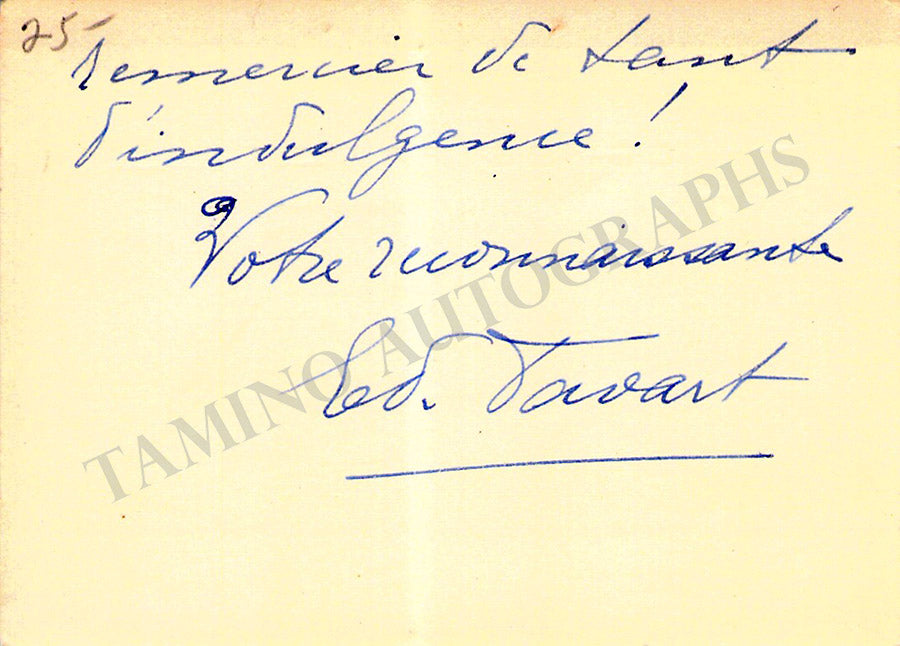 25-
remercier de tant
d'indulgence !
Votre reconnaissante
Ed. Favart
TAMINO AUTOGRAPHS